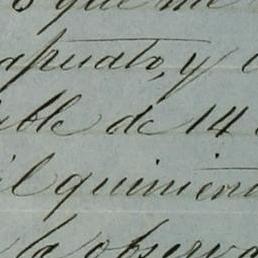 o que me
apuato, y
ible de 14
il quinien
la observa